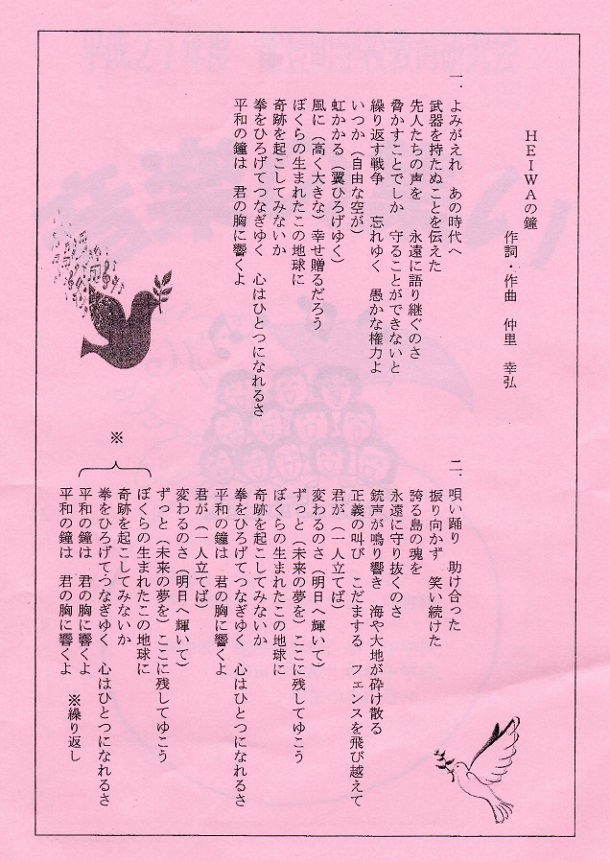 HEIWAの鐘
作詞・作曲　仲里　幸弘
一、よみがえれ　あの時代へ
武器を持たぬことを伝えた
先人たちの声を　永遠に語り継ぐのさ
脅かすことでしか　守ることができないと
繰り返す戦争　忘れゆく　愚かな権力よ
いつか（自由な空が）
虹かかる（翼ひろげゆく）
風に（高く大きな）幸せ贈るだろう
ぼくらの生まれたこの地球に
奇跡を起こしてみないか
拳をひろげてつなぎゆく　心はひとつになれるさ
平和の鐘は　君の胸に響くよ
二、唄い踊り　助け合った
振り向かず　笑い続けた
誇る島の魂を
永遠に守り抜くのさ
銃声が鳴り響き　海や大地が砕け散る
正義の叫び　こだまする　フェンスを飛び越えて
君が（一人立てば）
変わるのさ（明日へ輝いて）
ずっと（未来の夢を）ここに残してゆこう
ぼくらの生まれたこの地球に
奇跡を起こしてみないか
拳をひろげてつなぎゆく　心はひとつになれるさ
平和の鐘は　君の胸に響くよ
君が（一人立てば）
変わるのさ（明日へ輝いて）
ずっと（未来の夢を）ここに残してゆこう
※
ぼくらの生まれたこの地球に
奇跡を起こしてみないか
拳をひろげてつなぎゆく　心はひとつになれるさ
平和の鐘は　君の胸に響くよ
平和の鐘は　君の胸に響くよ　※繰り返し